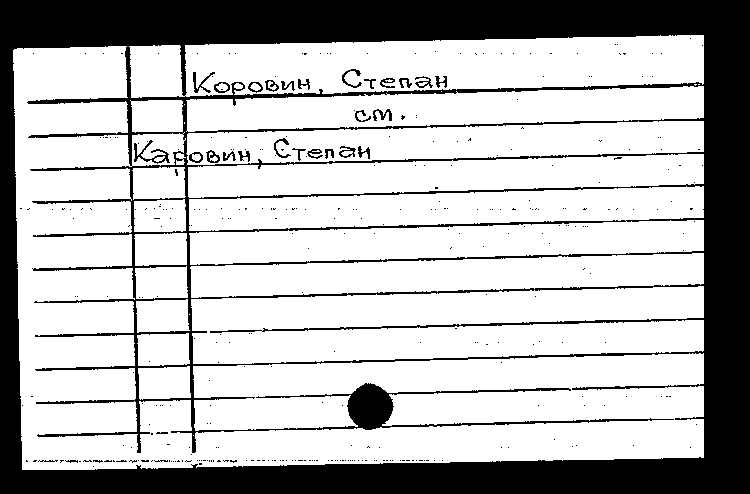 Коровин, Степан
см.
Каровин, Степан